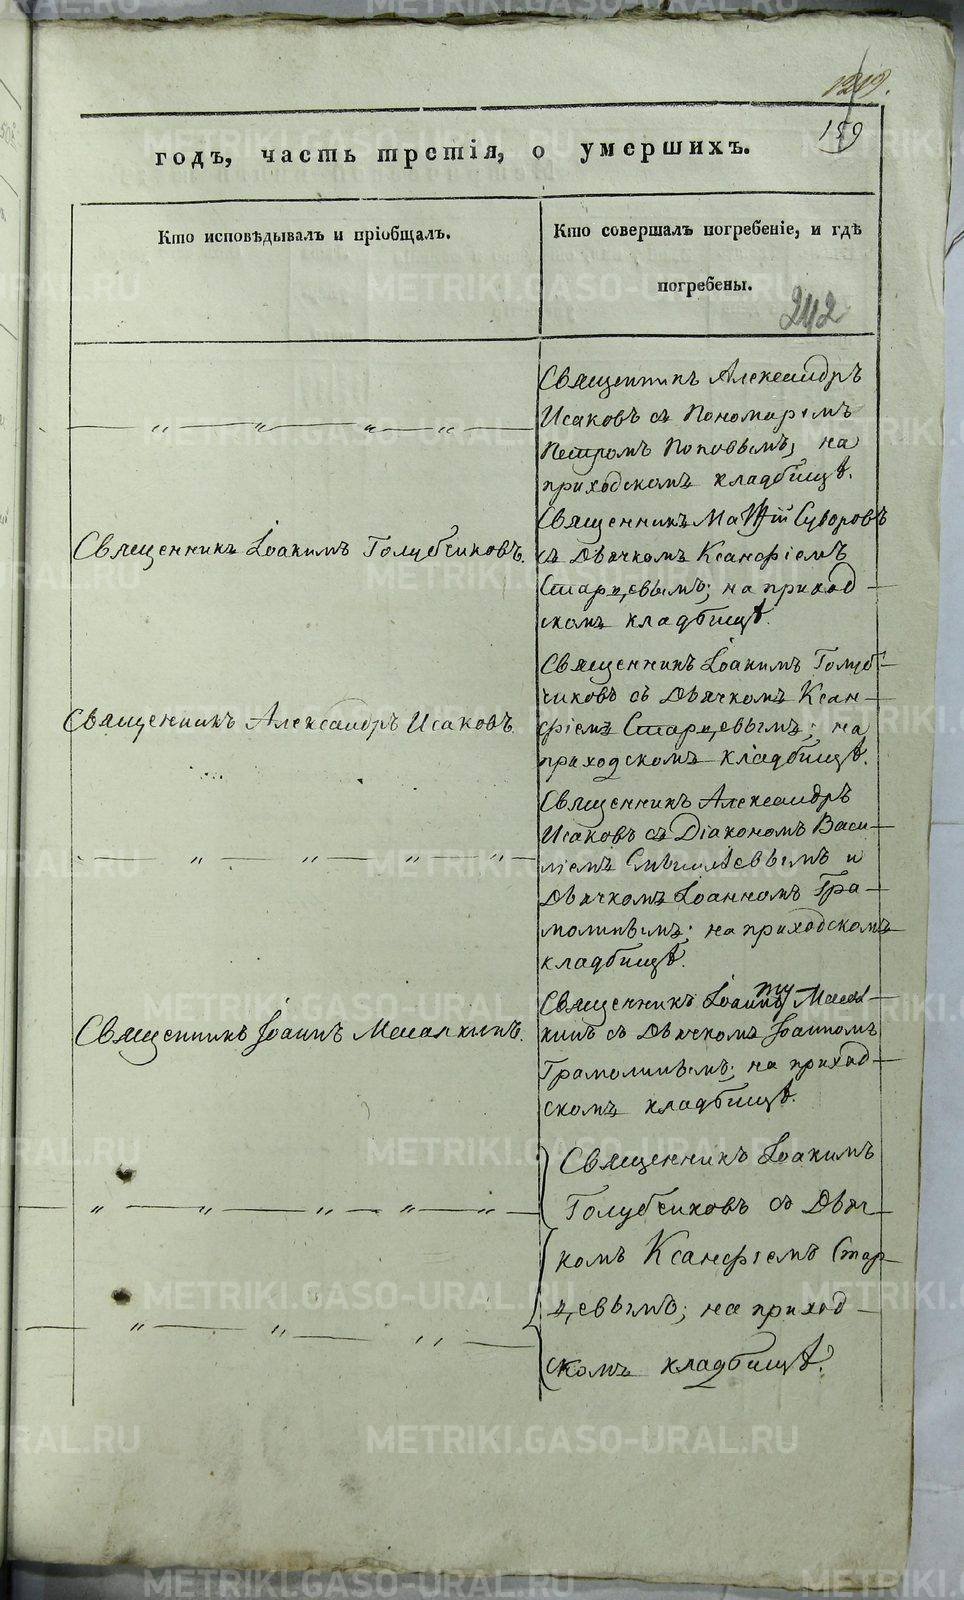 159
годъ, часть третія, о умершихъ.
Кто исповѣдывалъ и пріобщалъ.
Кто совершалъ погребеніе, и гдѣ
погребены.
242
Священникъ Александръ
Исаковъ съ Пономаремъ
Петромъ Поповымъ; на
приходскомъ кладбищѣ.
Священникъ Іоакимъ Голубчиковъ.
Священникъ Матѳій Суворовъ
съ Дьячкомъ Ксанфіемъ
Старцевымъ; на приход
скомъ кладбищѣ.
Священникъ Александръ Исаковъ.
Священникъ Іоакимъ Голуб
чиковъ съ Дьячкомъ Ксан
фіемъ Старцевымъ; на
приходскомъ кладбищѣ.
Священникъ Александръ
Исаковъ съ Діакономъ Васи
ліемъ и
Дьячкомъ Іоанномъ Гра
молинымъ; на приходскомъ
кладбищѣ.
Священникъ Іоаннъ Масалкинъ.
Священникъ Іоаннъ Масал
кинъ съ Дьячкомъ Іоанномъ
Грамолинымъ; на приход
скомъ кладбищѣ.
Священникъ Іоакимъ
Голубчиковъ съ Дьяч
комъ Ксанфіемъ Стар
цевымъ; на приход
скомъ кладбищѣ.
METRIKI.GASO-URAL.RU